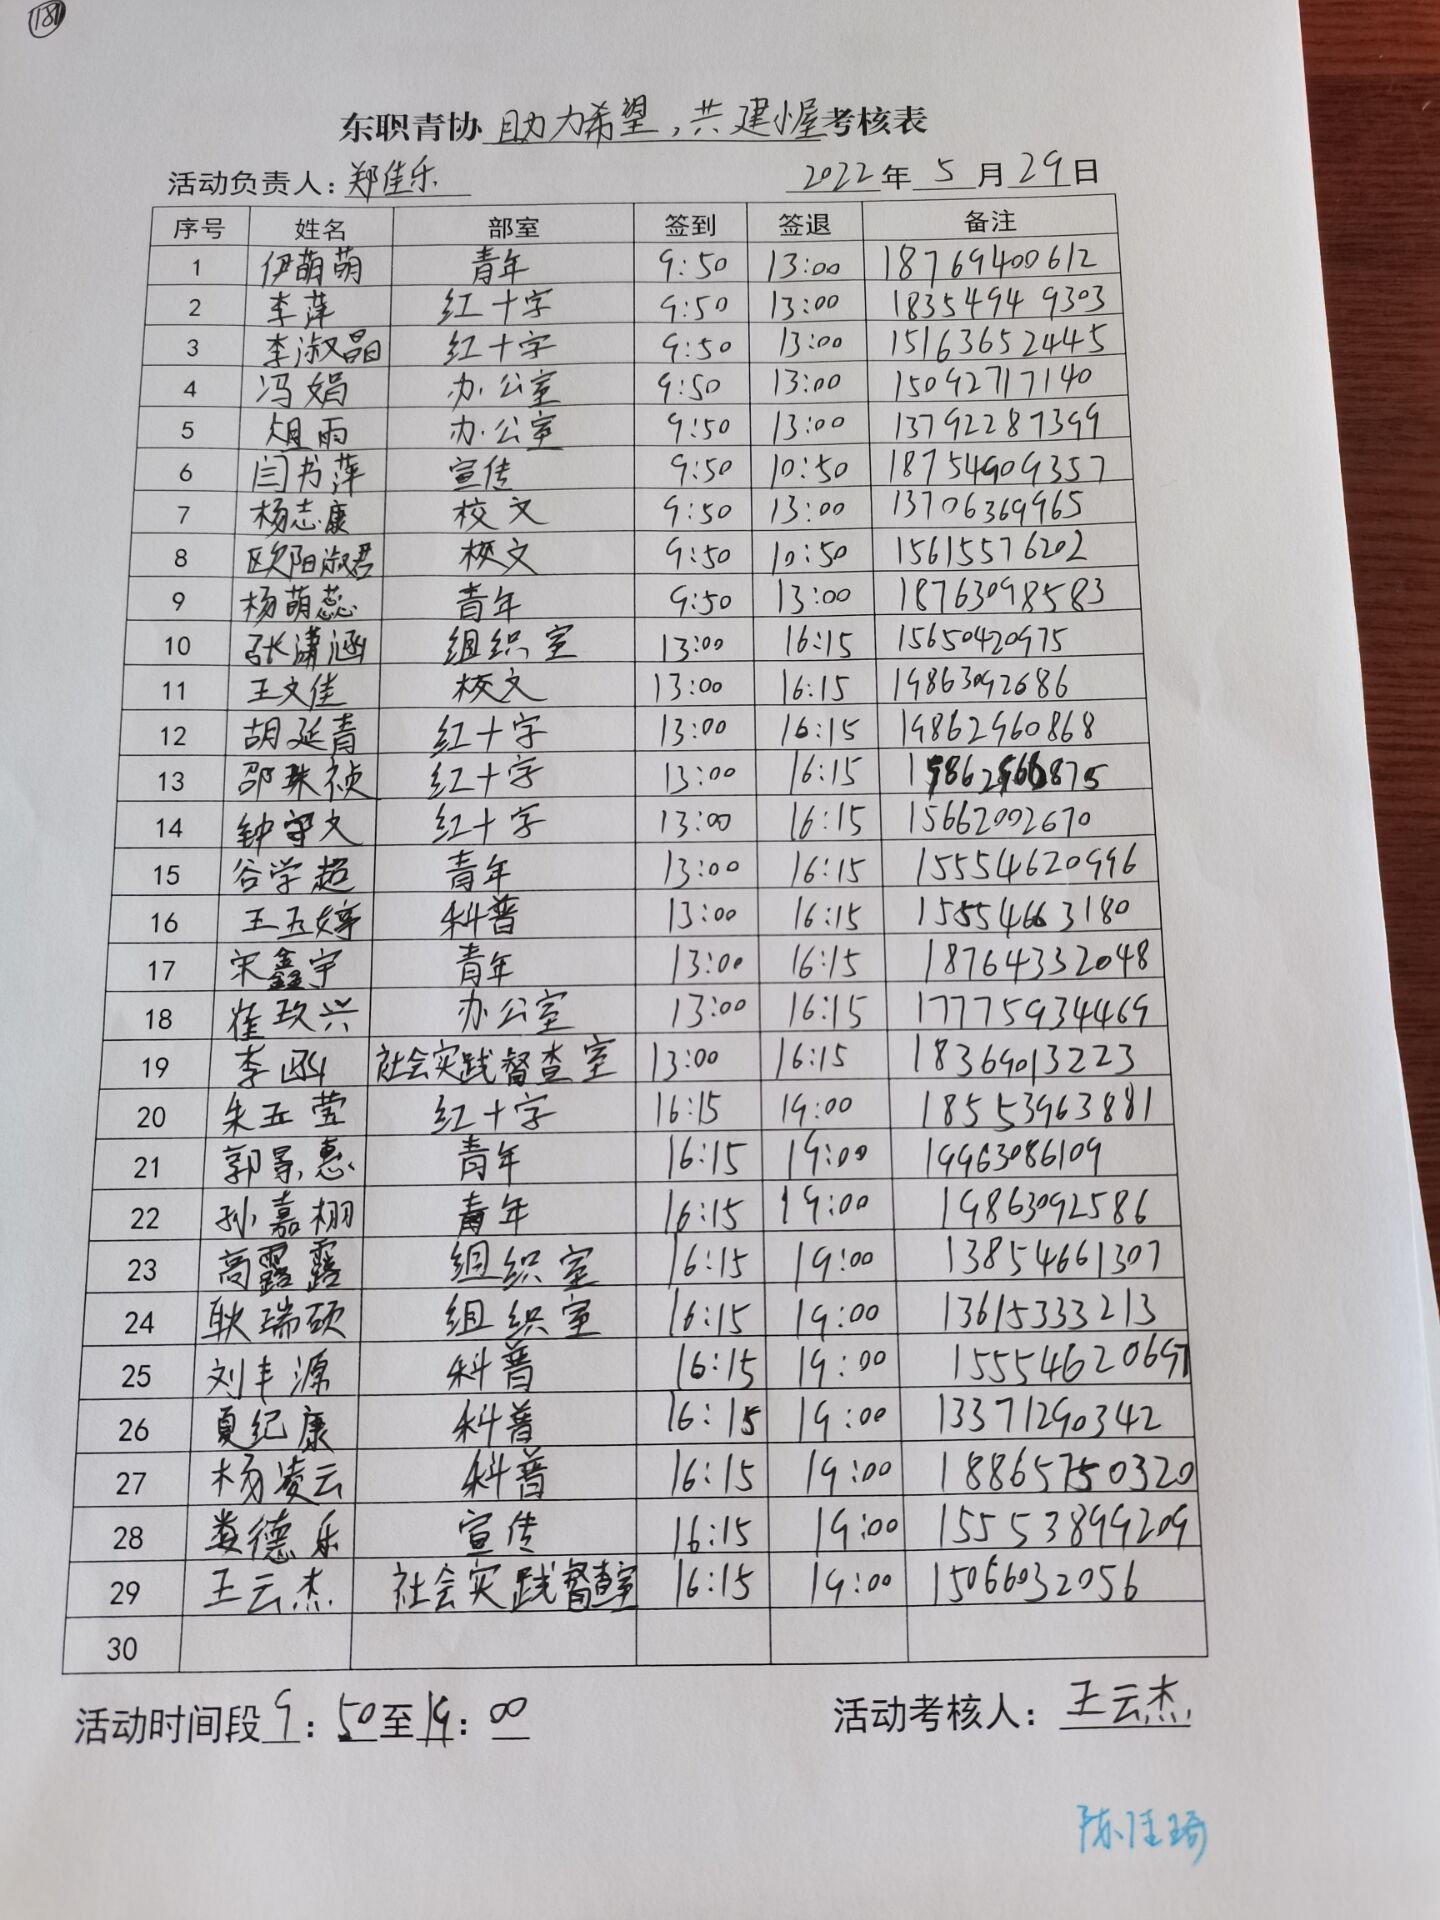 181
东职青协 助力希望,共建小屋 考核表
活动负责人:郑佳乐 2022年 5 月 29 日
序号 姓名 部室 签到 签退 备注
1 伊萌萌 青年 9:50 13:00 18769400612
2 李萍 红十字 9:50 13:00 18354949303
3 李淑晶 红十字 9:50 13:00 15163652445
4 冯娟 办公室 9:50 13:00 15092717140
5 雨 办公室 9:50 13:00 13792287399
6 闫书萍 宣传 9:50 10:50 18754909357
7 杨志康 校文 9:50 13:00 13706369965
8 欧阳淑君 校文 9:50 10:50 15615576202
9 杨萌蕊 青年 9:50 13:00 18763098583
10 张潇涵 组织室 13:00 16:15 15650420975
11 王文佳 校文 13:00 16:15 19863092686
12 胡延青 红十字 13:00 16:15 19862960868
13 邵珠祯 红十字 13:00 16:15
14 钟守文 红十字 13:00 16:15 15662002670
15 谷学超 青年 13:00 16:15 15554620996
16 王玉婷 科普 13:00 16:15 15554663180
17 宋鑫宇 青年 13:00 16:15 18764332048
18 崔政兴 办公室 13:00 16:15 17775934469
19 李 社会实践督查室 13:00 16:15 18369013223
20 朱玉莹 红十字 16:15 19:00 18553963881
21 郭景惠 青年 16:15 19:00 19963086109
22 孙嘉栩 青年 16:15 19:00 19863092586
23 高露露 组织室 16:15 19:00 13854661307
24 耿瑞硕 组织室 16:15 19:00 13615333213
25 刘丰源 科普 16:15 19:00 15554620697
26 夏纪康 科普 16:15 19:00 13371290342
27 杨凌云 科普 16:15 19:00 18865750320
28 娄德乐 宣传 16:15 19:00 15553899209
29 王云杰 社会实践督查室 16:15 19:00 15066032056
30
活动时间段 9:50至19:00 活动考核人:王云杰
陈佳琦